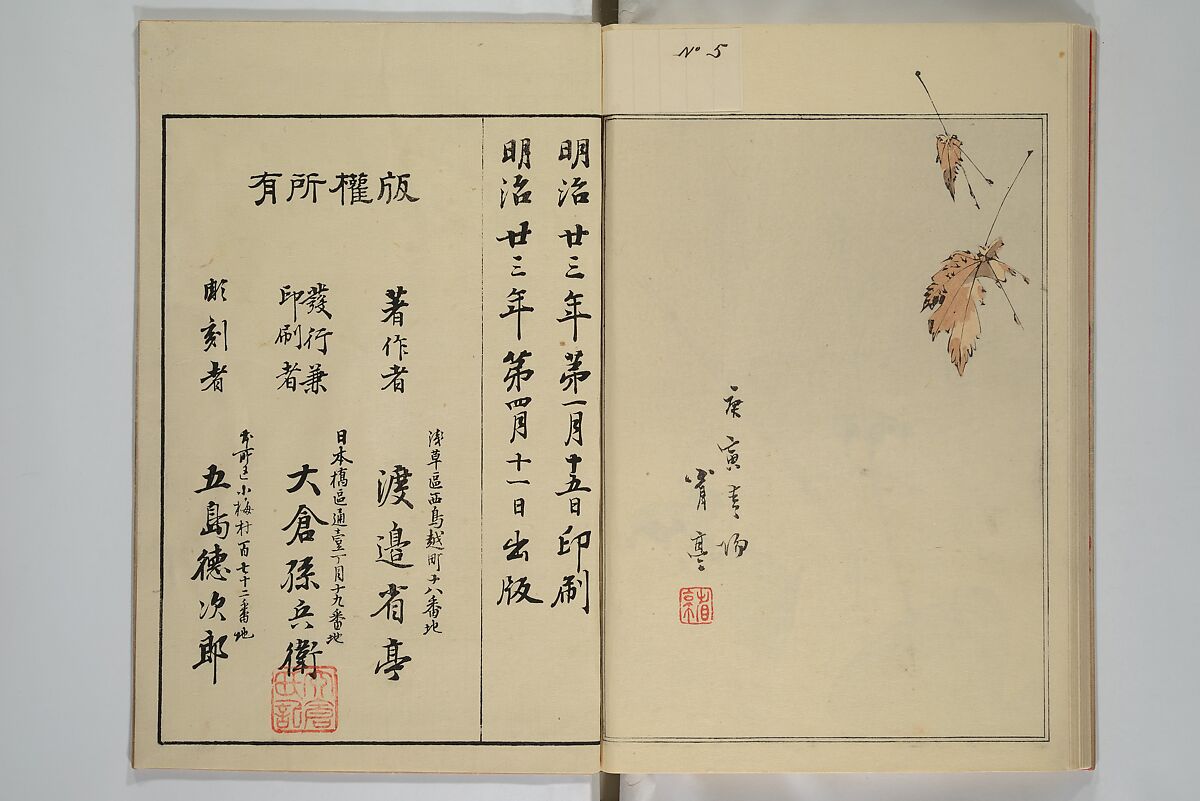 No 5
庚寅春日
省亭
省亭
明治廿三年第一月十五日印刷
明治廿三年第四月十一日出版
版權所有
著作者
淺草區西鳥越町十八番地
渡邉省亭
發行兼
印刷者
日本橋區通壹丁目十九番地
大倉孫兵衛
彫刻者
本所区小梅村百七十二番地
五島德次郎